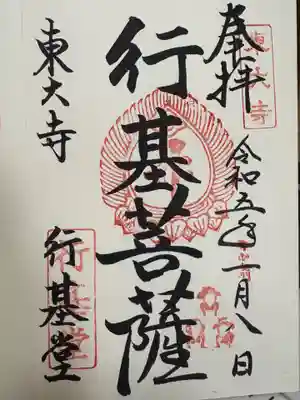 奉拝
東大寺
令和五年二月八日
行基菩薩
東大寺
行基堂
行基堂